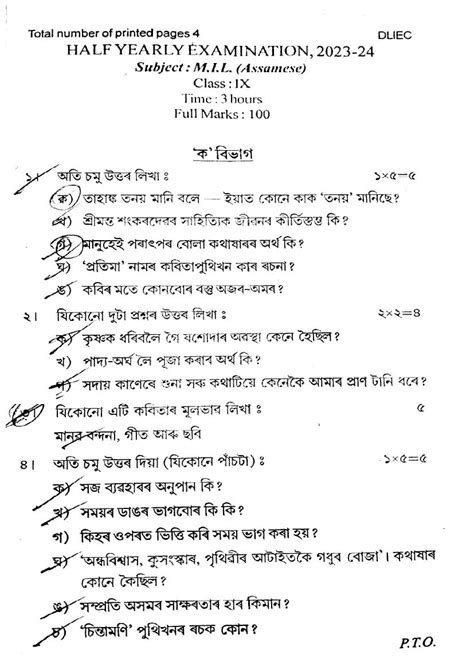 Total number of printed pages 4 DLIEC
HALF YEARLY EXAMINATION, 2023-24
Subject : M.I.L. (Assamese)
Class : IX
Time : 3 hours
Full Marks : 100
'ক' বিভাগ
১। অতি চমু উত্তৰ লিখা ঃ ১×৫=৫
ক) তাহাঙ্ক তনয় মানি বলে — ইয়াত কোনে কাক 'তনয়' মানিছে?
খ) শ্ৰীমন্ত শংকৰদেৱৰ সাহিত্যিক জীৱনৰ কীৰ্তিস্তম্ভ কি?
গ) মানুহেই পৰাৎপৰ বোলা কথাষাৰৰ অৰ্থ কি?
ঘ) 'প্ৰতিমা' নামৰ কবিতাপুথিখন কাৰ ৰচনা?
ঙ) কবিৰ মতে কোনবোৰ বস্তু অজৰ-অমৰ?
২। যিকোনো দুটা প্ৰশ্নৰ উত্তৰ লিখা ঃ ২×২=৪
ক) কৃষ্ণক ধৰিবলৈ গৈ যশোদাৰ অৱস্থা কেনে হৈছিল?
খ) পাদ্য-অৰ্ঘ লৈ পূজা কৰাৰ অৰ্থ কি?
গ) সদায় কাণেৰে শুনা সৰু কথাটিয়ে কেনেকৈ আমাৰ প্ৰাণ টানি ধৰে?
৩। যিকোনো এটি কবিতাৰ মূলভাব লিখা ঃ ৫
মানৱ বন্দনা, গীত আৰু ছবি
৪। অতি চমু উত্তৰ দিয়া (যিকোনে পাঁচটা) ঃ ১×৫=৫
ক) সজ ব্যৱহাৰৰ অনুপান কি?
খ) সময়ৰ ডাঙৰ ভাগবোৰ কি কি?
গ) কিহৰ ওপৰত ভিত্তি কৰি সময় ভাগ কৰা হয়?
ঘ) 'অন্ধবিশ্বাস, কুসংস্কাৰ, পৃথিৱীৰ আটাইতকৈ গধুৰ বোজা'। কথাষাৰ
কোনে কৈছিল?
ঙ) সম্প্ৰতি অসমৰ সাক্ষৰতাৰ হাৰ কিমান?
চ) 'চিন্তামণি' পুথিখনৰ ৰচক কোন?
P.T.O.